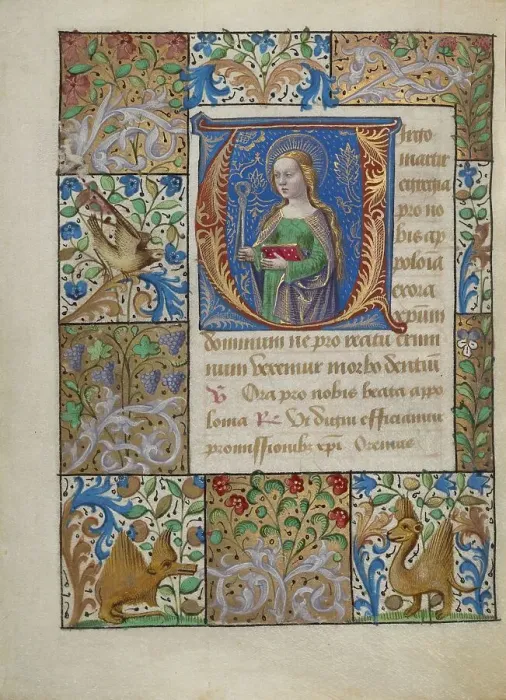 Virgo
martir
egregia
pro no
bis ap
polonia
exora
xpum
dominum ne pro reatu crimi
num vexemur morbo dentium
V Ora pro nobis beata appo
lonia R Ut digni efficiamur
promissionibus xpi Oremus